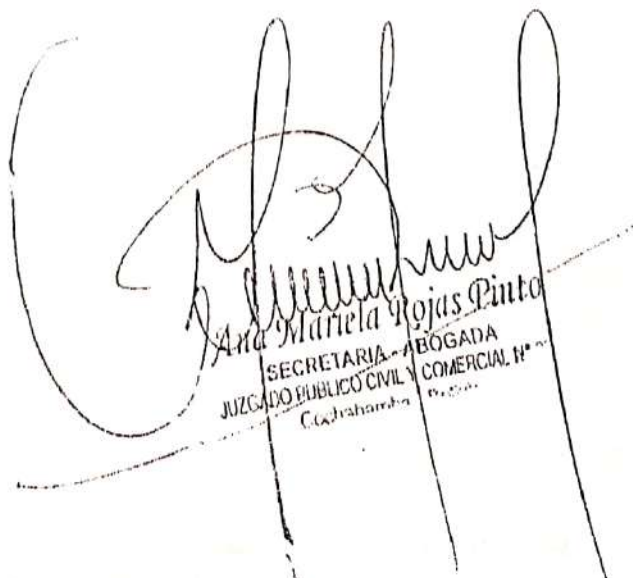 Ana Mariela Rojas Pinto
SECRETARIA - ABOGADA
JUZGADO PUBLICO CIVIL Y COMERCIAL Nº
Cochabamba